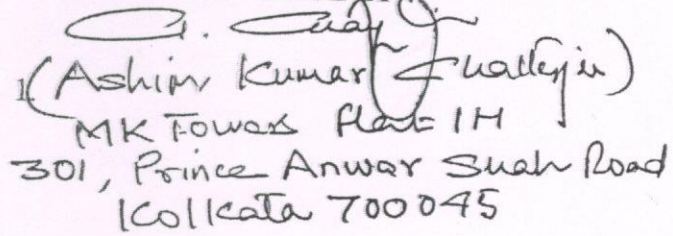 (Ashim Kumar Chatterjee)
MK Towers Flat 1H
301, Prince Anwar Shah Road
Kolkata 700045